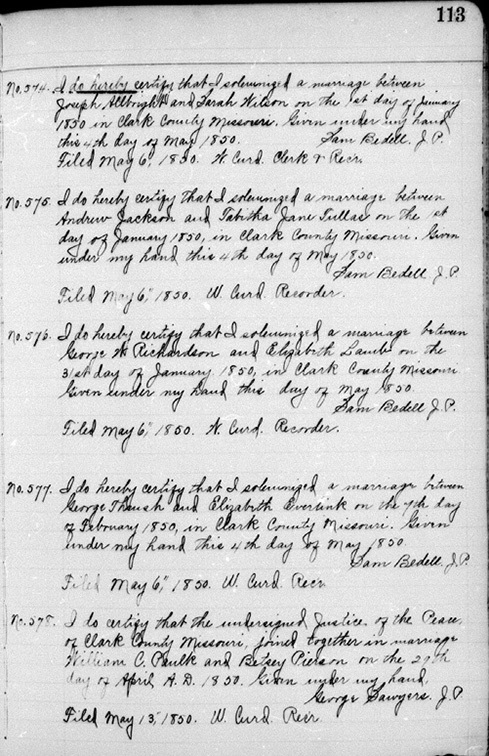 113
No. 574. I do hereby certify that I solemnized a marriage between
Joseph Allbright and Sarah Wilson on the 1st day of January
1850 in Clark County Missouri. Given under my hand
this 4th day of May 1850. Sam Bedell, J.P.
Filed May 6, 1850. W. Curd Clerk & Recr.
No. 575. I do hereby certify that I solemnized a marriage between
Andrew Jackson and Jane on the 1st
day of January 1850, in Clark County Missouri. Given
under my hand this 4th day of May 1850.
Sam Bedell J.P.
Filed May 6," 1850. W. Curd Recorder.
No. 576. I do hereby certify that I solemnized a marriage between
George W Richardson and Elizabeth on the
31st day of January 1850, in Clark County Missouri
Given under my hand this day of May 1850.
Sam Bedell J.P.
Filed May 6," 1850. W. Curd. Recorder.
No. 577. I do hereby certify that I solemnized a marriage between
George and Elizabeth on the 7th day
of February 1850, in Clark County Missouri. Given
under my hand this 4th day of May 1850
Sam Bedell. J.P.
Filed May 6," 1850. W. Curd. Recr
No. 578. I do certify that the undersigned Justice of the Peace,
of Clark County Missouri, joined together in marriage
William C. Paulk and Betsey Pierson on the 27th
day of April A.D. 1850. Given under my hand,
George Sawyers. J.P.
Filed May 13," 1850. W. Curd Recr.